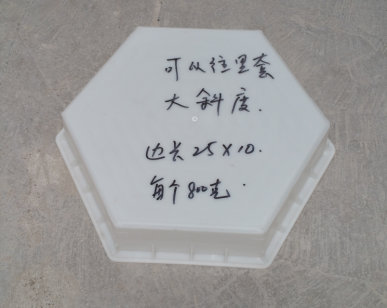 可以往里套
大斜度.
边长25×10.
每个800克.